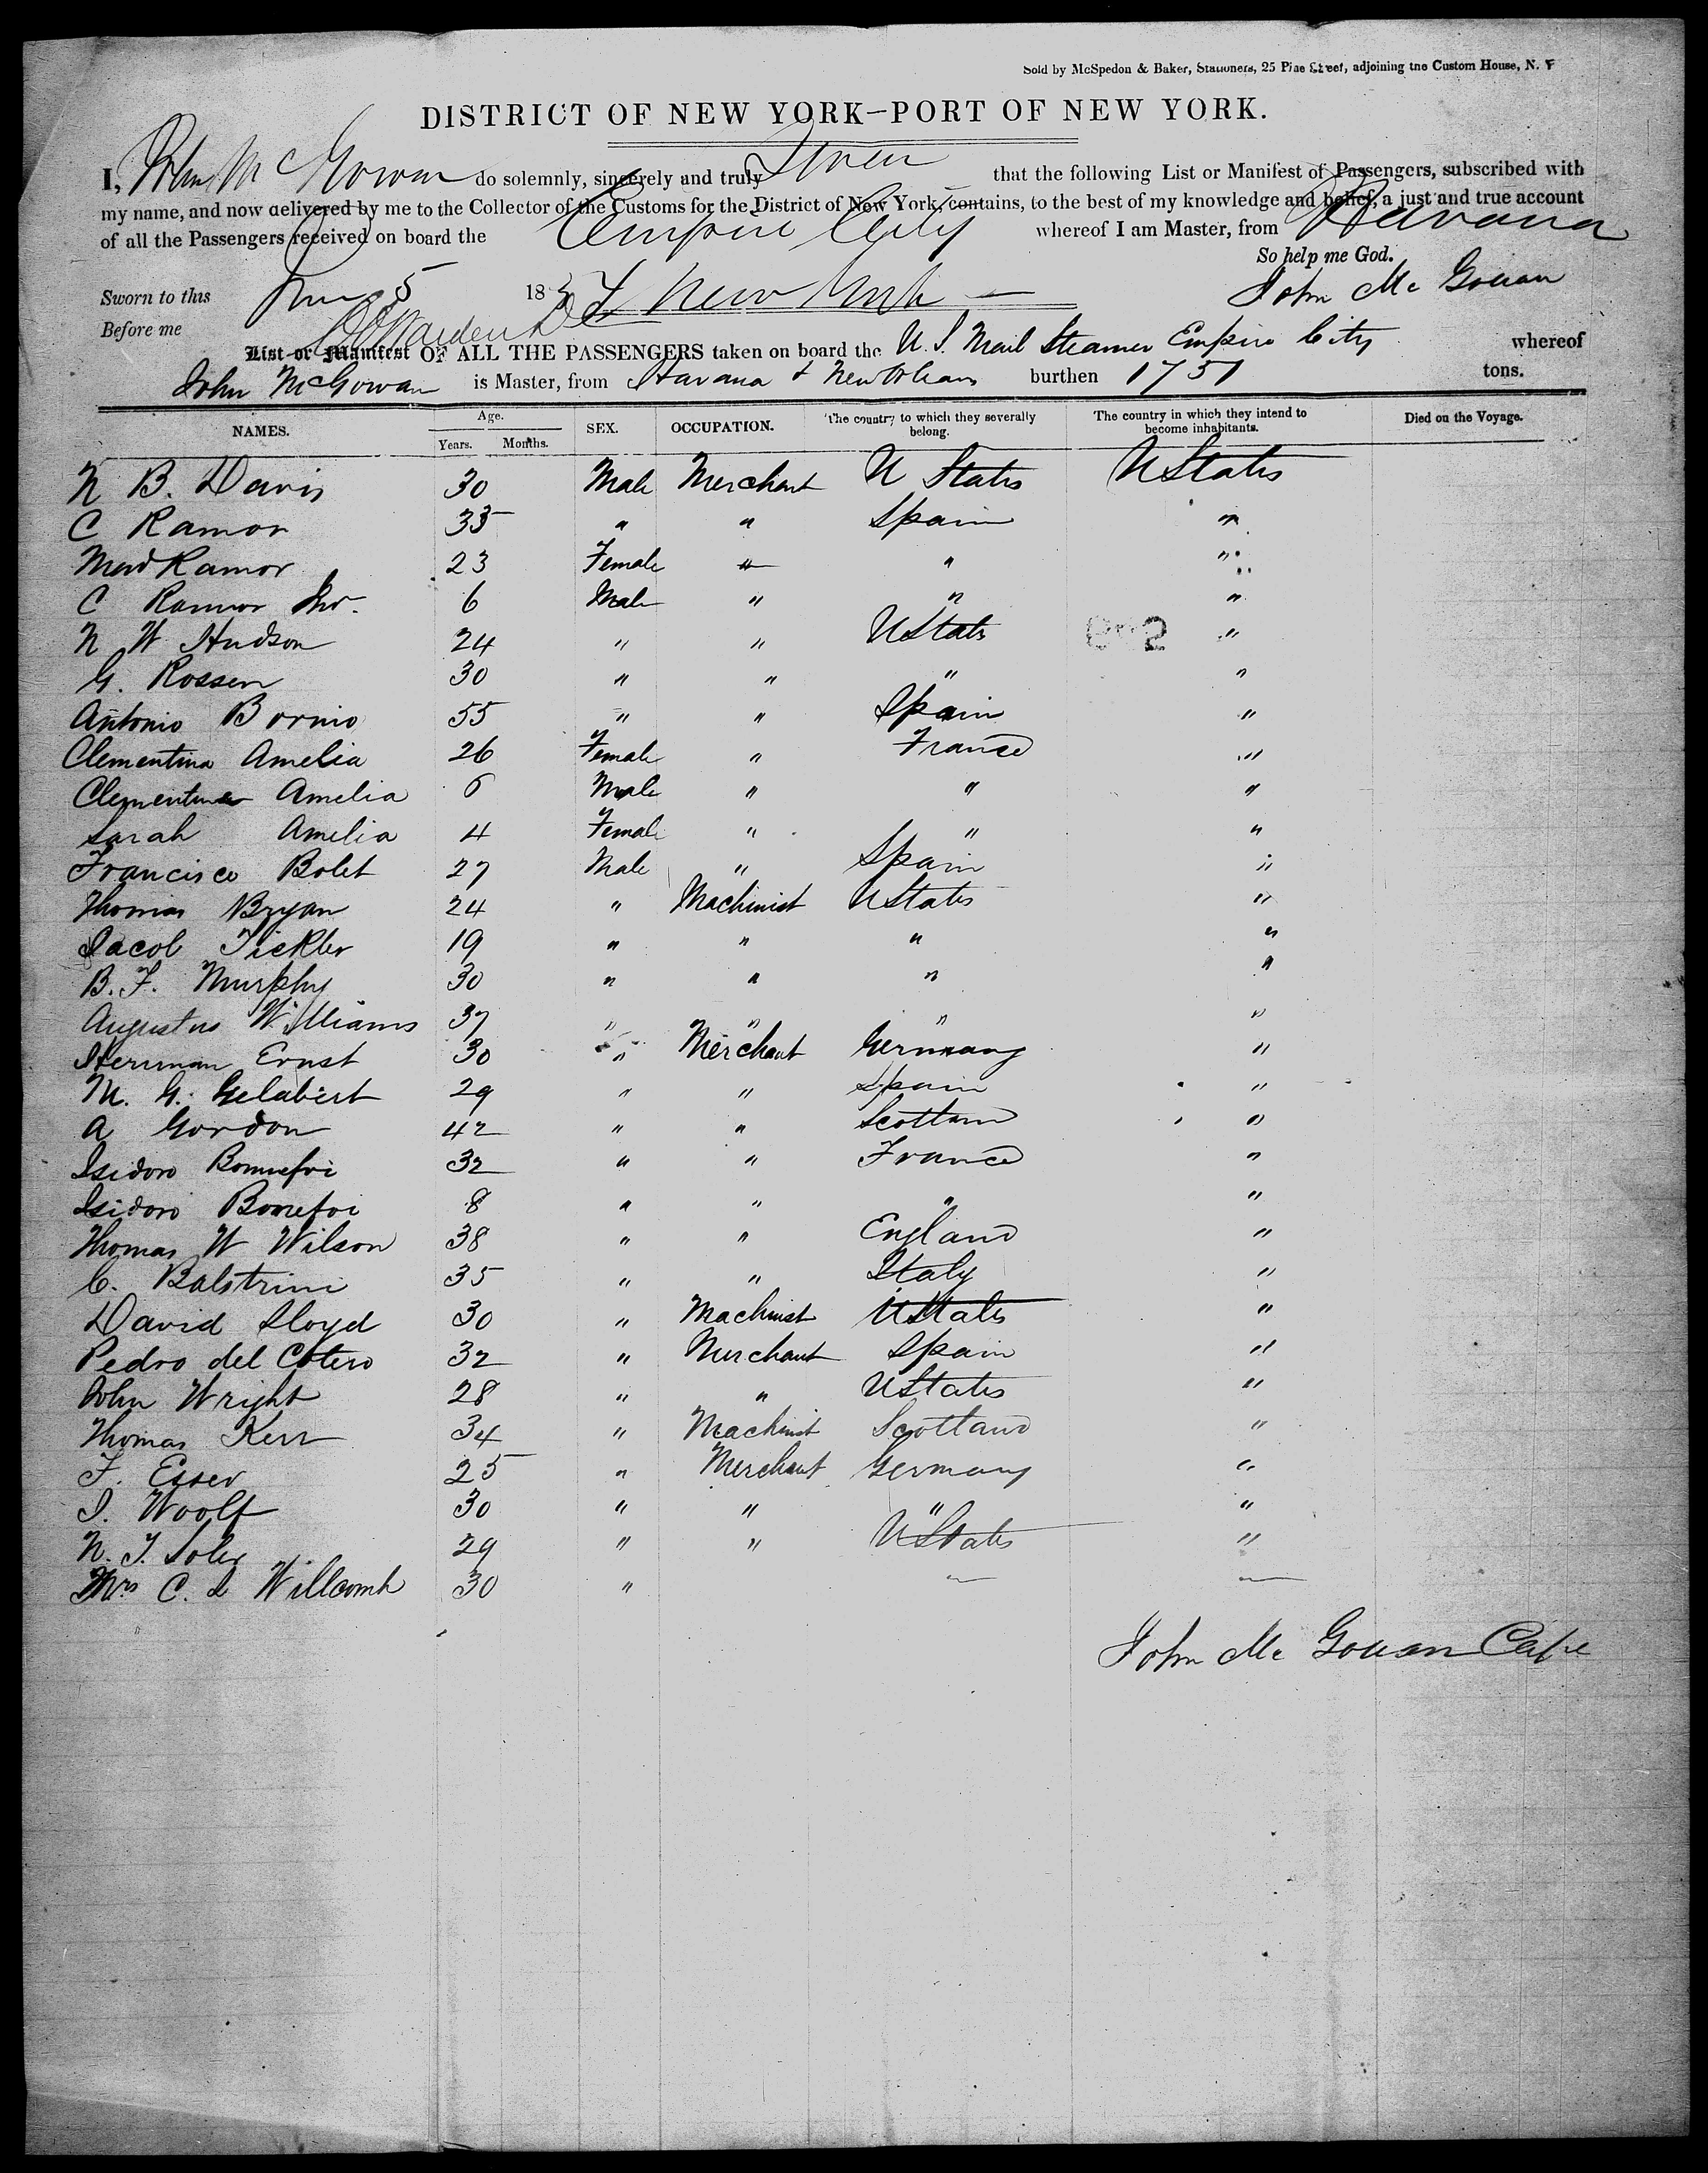 Sold by McSpedon & Baker, Stationers, 25 Pine Street, adjoining the Custom House, N. Y
DISTRICT OF NEW YORK–PORT OF NEW YORK.
I, John McGowan do solemnly, sincerely and truly Swear that the following List or Manifest of Passengers, subscribed with
my name, and now delivered by me to the Collector of the Customs for the District of New York, contains, to the best of my knowledge and belief, a just and true account
of all the Passengers received on board the Empire City whereof I am Master, from Havana
So help me God.
Sworn to this June 5 185 New York John Mc Gowan
Before me
List or Manifest OF ALL THE PASSENGERS taken on board the U. S. Mail Steamer Empire City whereof
John McGowan is Master, from Havana & New Orleans burthen 1751 tons.
NAMES. Age. Years. Months. SEX. OCCUPATION. The country to which they severally belong. The country in which they intend to become inhabitants. Died on the Voyage.
N B. Davis 30 Male Merchant U States U States
C Ramon 35 " " Spain "
Mad Ramon 23 Female " " "
C Ramon Jnr. 6 Male " " "
N W Hudson 24 " " U States "
G. Rossen 30 " " " "
Antonio Bornio 55 " " Spain "
Clementina Amelia 26 Female " France "
Clementine Amelia 6 Male " " "
Sarah Amelia 4 Female " " "
Francisco Bolet 27 Male " Spain "
Thomas Bryan 24 " Machinist U States "
Jacob Tickler 19 " " " "
B. F. Murphy 30 " " " "
Augustus Williams 37 " " " "
Herrman Ernst 30 " Merchant Germany "
M. G. Gelabert 29 " " Spain "
A Gordon 42 " " Scotland "
Isidoro Bonnefoi 32 " " France "
Isidoro Bonefoi 8 " " " "
Thomas W Wilson 38 " " England "
C. Balstrini 35 " " Italy "
David Lloyd 30 " Machinist U States "
Pedro del Cotero 32 " Merchant Spain "
John Wright 28 " " U States "
Thomas Kerr 34 " Machinist Scotland "
F. Esser 25 " Merchant Germany "
I. Woolf 30 " " " "
N. T. Soler 29 " " U States "
Mrs C. L Willcomb 30 "
John Mc Gowan Capt